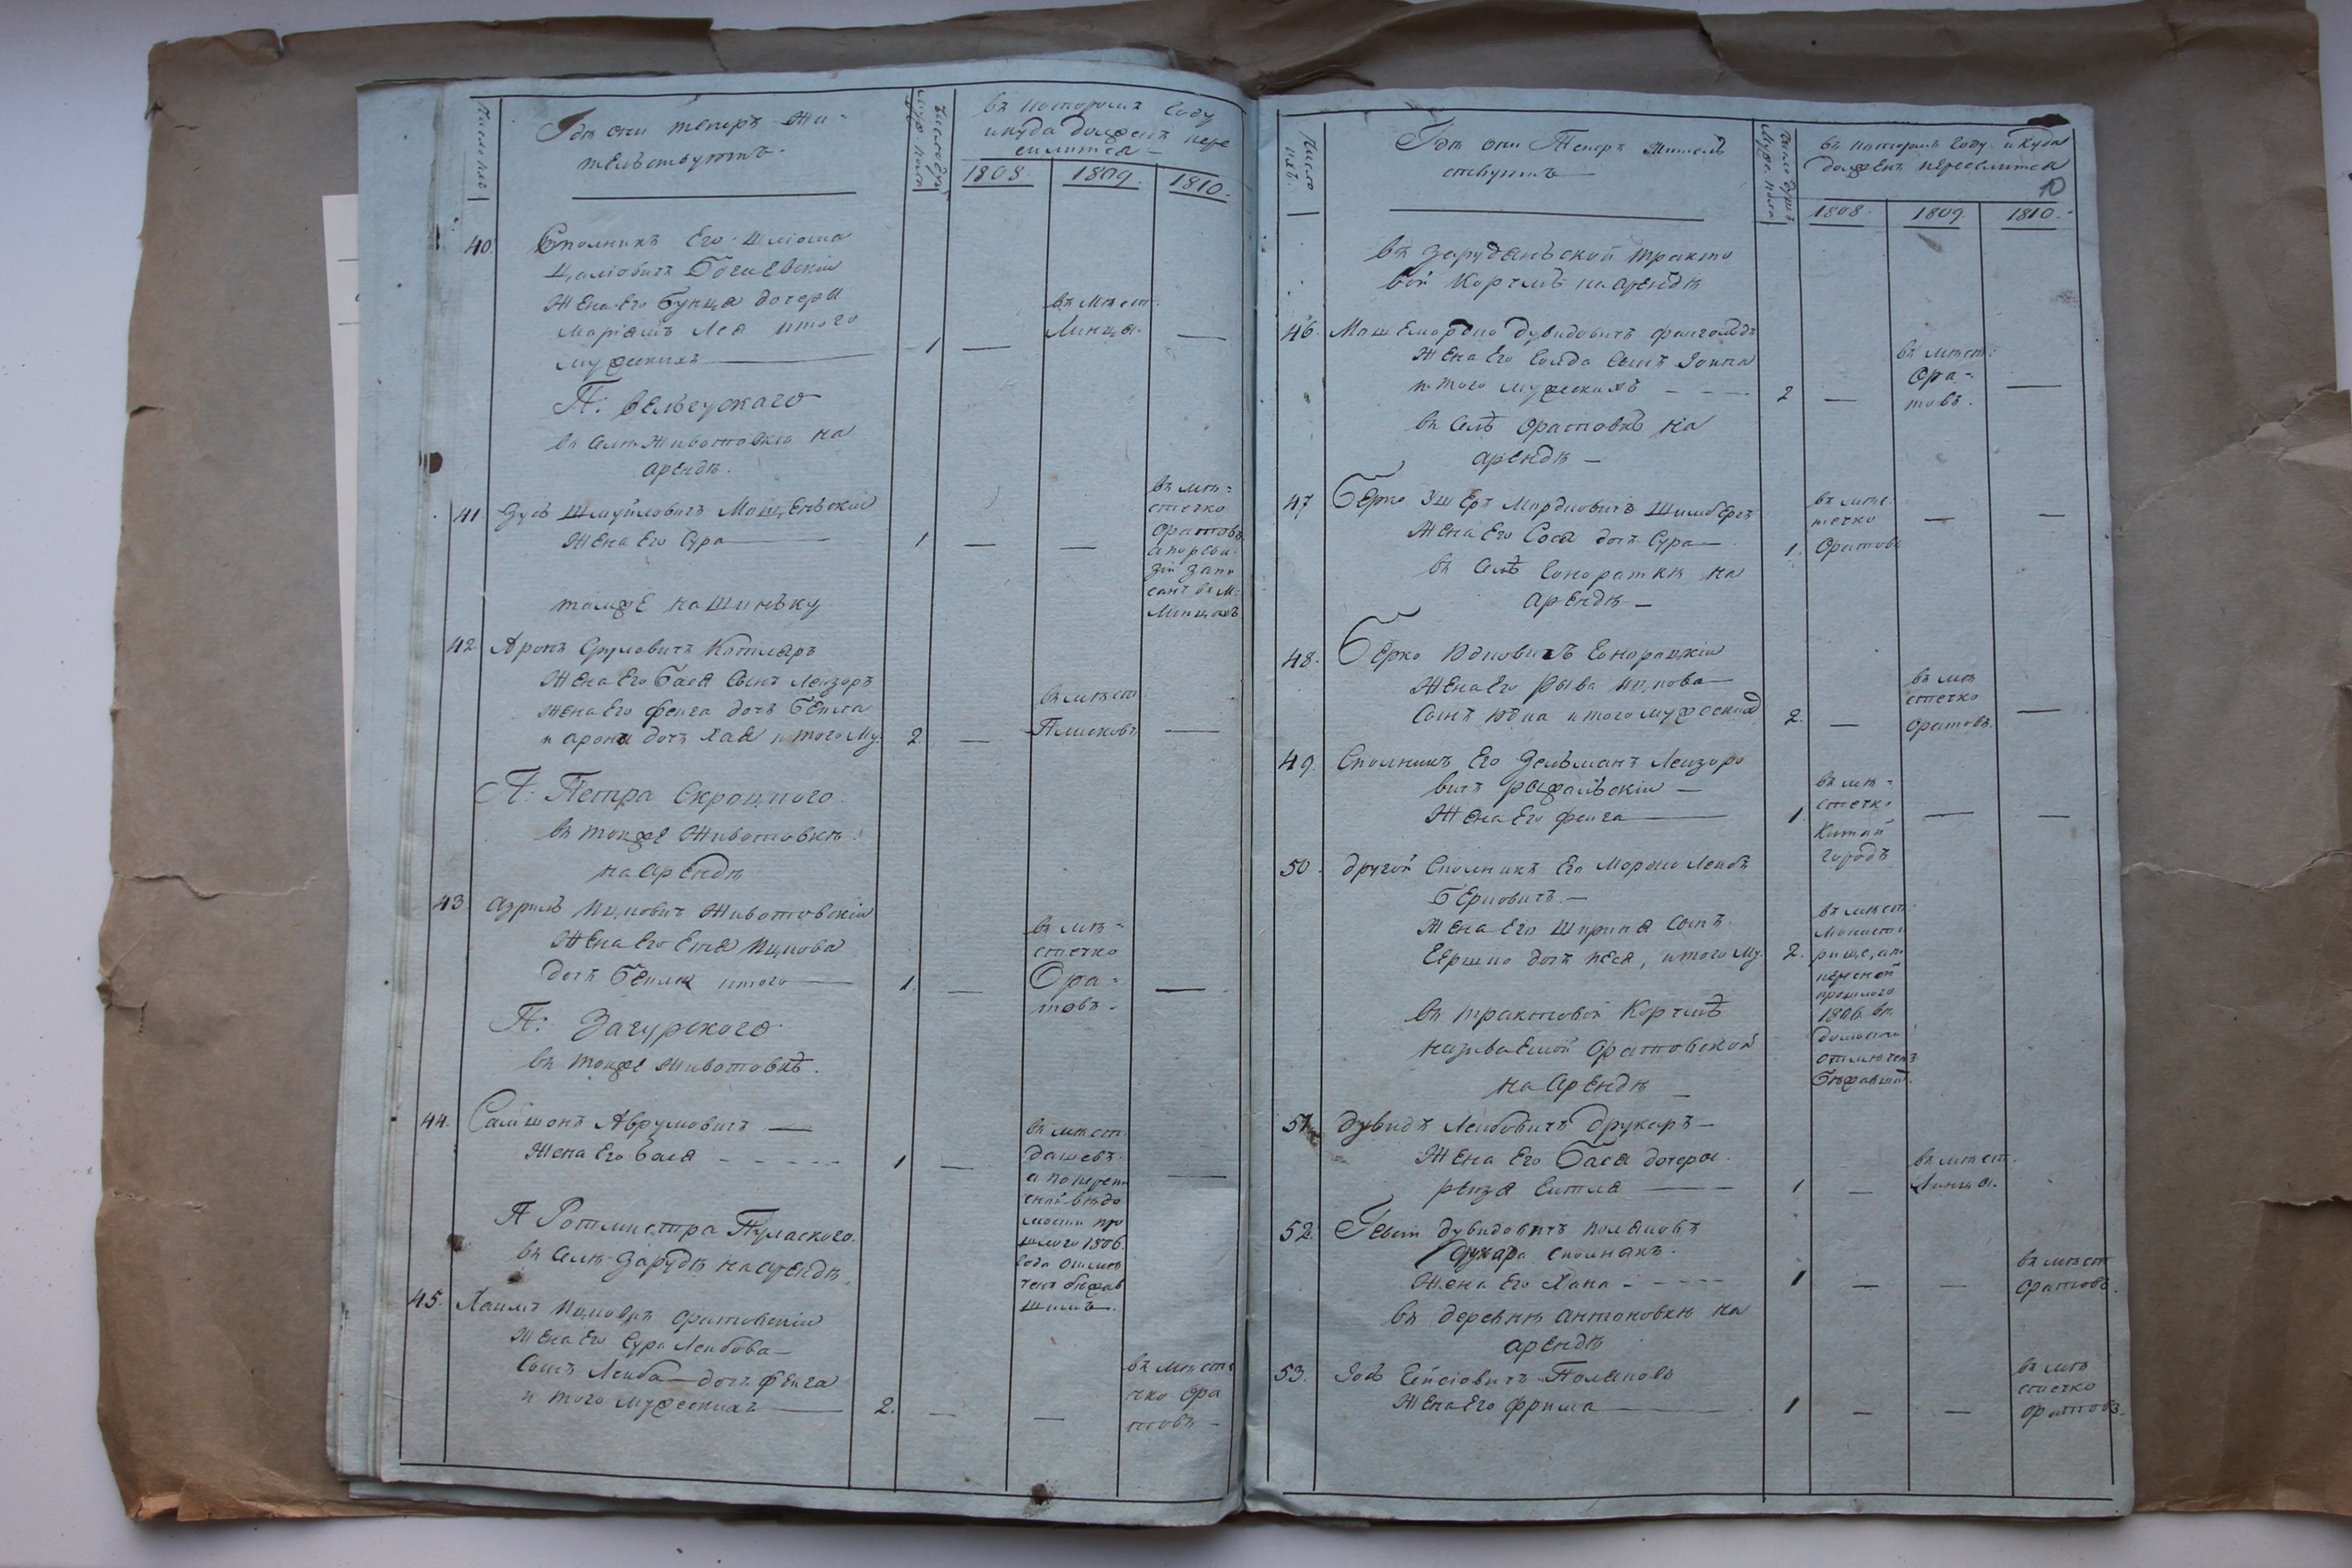 Число ихъ
Гдѣ они теперъ жи-
тельствуютъ.
Число душъ
муж. пола
въ которомъ году
и куда долженъ пере
силитса
1808.
1809.
1810.
40.
Сполникъ Его Шлiома
Богиевскiй
Жена Его Бунца дочеры
Марiямъ Лея итого
мужескихъ
1
въ мѣст:
Линцы.
П:
въ селѣ Животовкѣ на
арендѣ.
41
Зусь Шмуйловичъ
Жена Его Сура
1
въ мѣ-
стечко
Оратовъ
а по реви
зiи запи
санъ въ м:
Линцахъ
тамже на шинъку
42
Аронъ Срулович Котляръ
Жена Его Бася Сынъ Лейзоръ
жена Его Фейга дочъ Бейла
и арона дочъ Хая итого му:
2
въ мѣст:
Плисковъ
П: Петра
въ тойже Животовкѣ
на арендѣ
43
Азриль Ицкович Животовскiй
Жена Его Етя Ицкова
дочъ Бейла итого
1.
въ мѣ-
стечко
Ора-
товъ-
П: Загурского
въ тойже Животовкѣ.
44.
Самшонъ Аврумовичъ
Жена Его Бася
1
въ мѣст
Дашевъ
а по переп
сной вѣдо
мости про
шлого 1806.
года отмѣ
ченъ бѣжав
шимъ.
П Ротмистра Пулаского.
въ селѣ Зарудѣ на арендѣ
45.
Хаимъ Ицковичъ Оратовскiй
Жена Его Сура Лейбова
Сынъ Лейба дочъ Фейга
итого мужескихъ
2.
въ мѣсте
чко Ора
товъ
Число
ихъ.
Гдѣ они Теперъ житель
ствуютъ
Число душъ
Муж. пола
въ которомъ году и куда
долженъ переселитса
10
1808.
1809.
1810.
въ Зарудянъской тракто
вой Корчмѣ на арендѣ
46.
Дувидовичъ
Жена Его Голда Сынъ Iойна
итого мужескихъ
2
въ мѣст:
Ора-
товъ.
въ селѣ Оратовкѣ на
арендѣ
47
Берко Мордковичъ
Жена Его Сося дочъ Сура
1.
въ мѣс
течко
Оратовъ
въ селѣ на
арендѣ
48.
Берко Юдковичъ
Жена Его Рыва Ицкова
Сынъ Юдка итого мужеских
2.
въ мѣ
стечко
Оратовъ.
49.
Сполникъ Его Зельманъ Лейзоро
вичъ
Жена Его Фейга
1
въ мѣ-
стечко
Китай
городъ
50.
другой Сполникъ Его Мордко Лейбъ
Берковичъ.
Жена Его Шпринa Сынъ
Гершко дочъ Песя, итого му:
2.
въ мѣст:
Монасты
рище, а по
переписной
прошлого
1806. вѣ
домости
отмѣченъ
бѣжавши.
въ трактовой Корчмѣ
називаемой Оратовской
на арендѣ
51.
Дувидъ Лейбовичъ Друкаръ
Жена Его Бася дочеры
Рейзя Гитля
1
въ мѣст.
Линцы.
52.
Дувидовичъ Поляковъ
Друкара сполникъ.
Жена Его Хана
1
въ мѣст
Оратовъ.
въ деревнѣ Антоновкѣ на
арендѣ
53.
Iосъ Поляковъ
Жена Его Фрима
1
въ мѣ
стечко
Оратовъ.